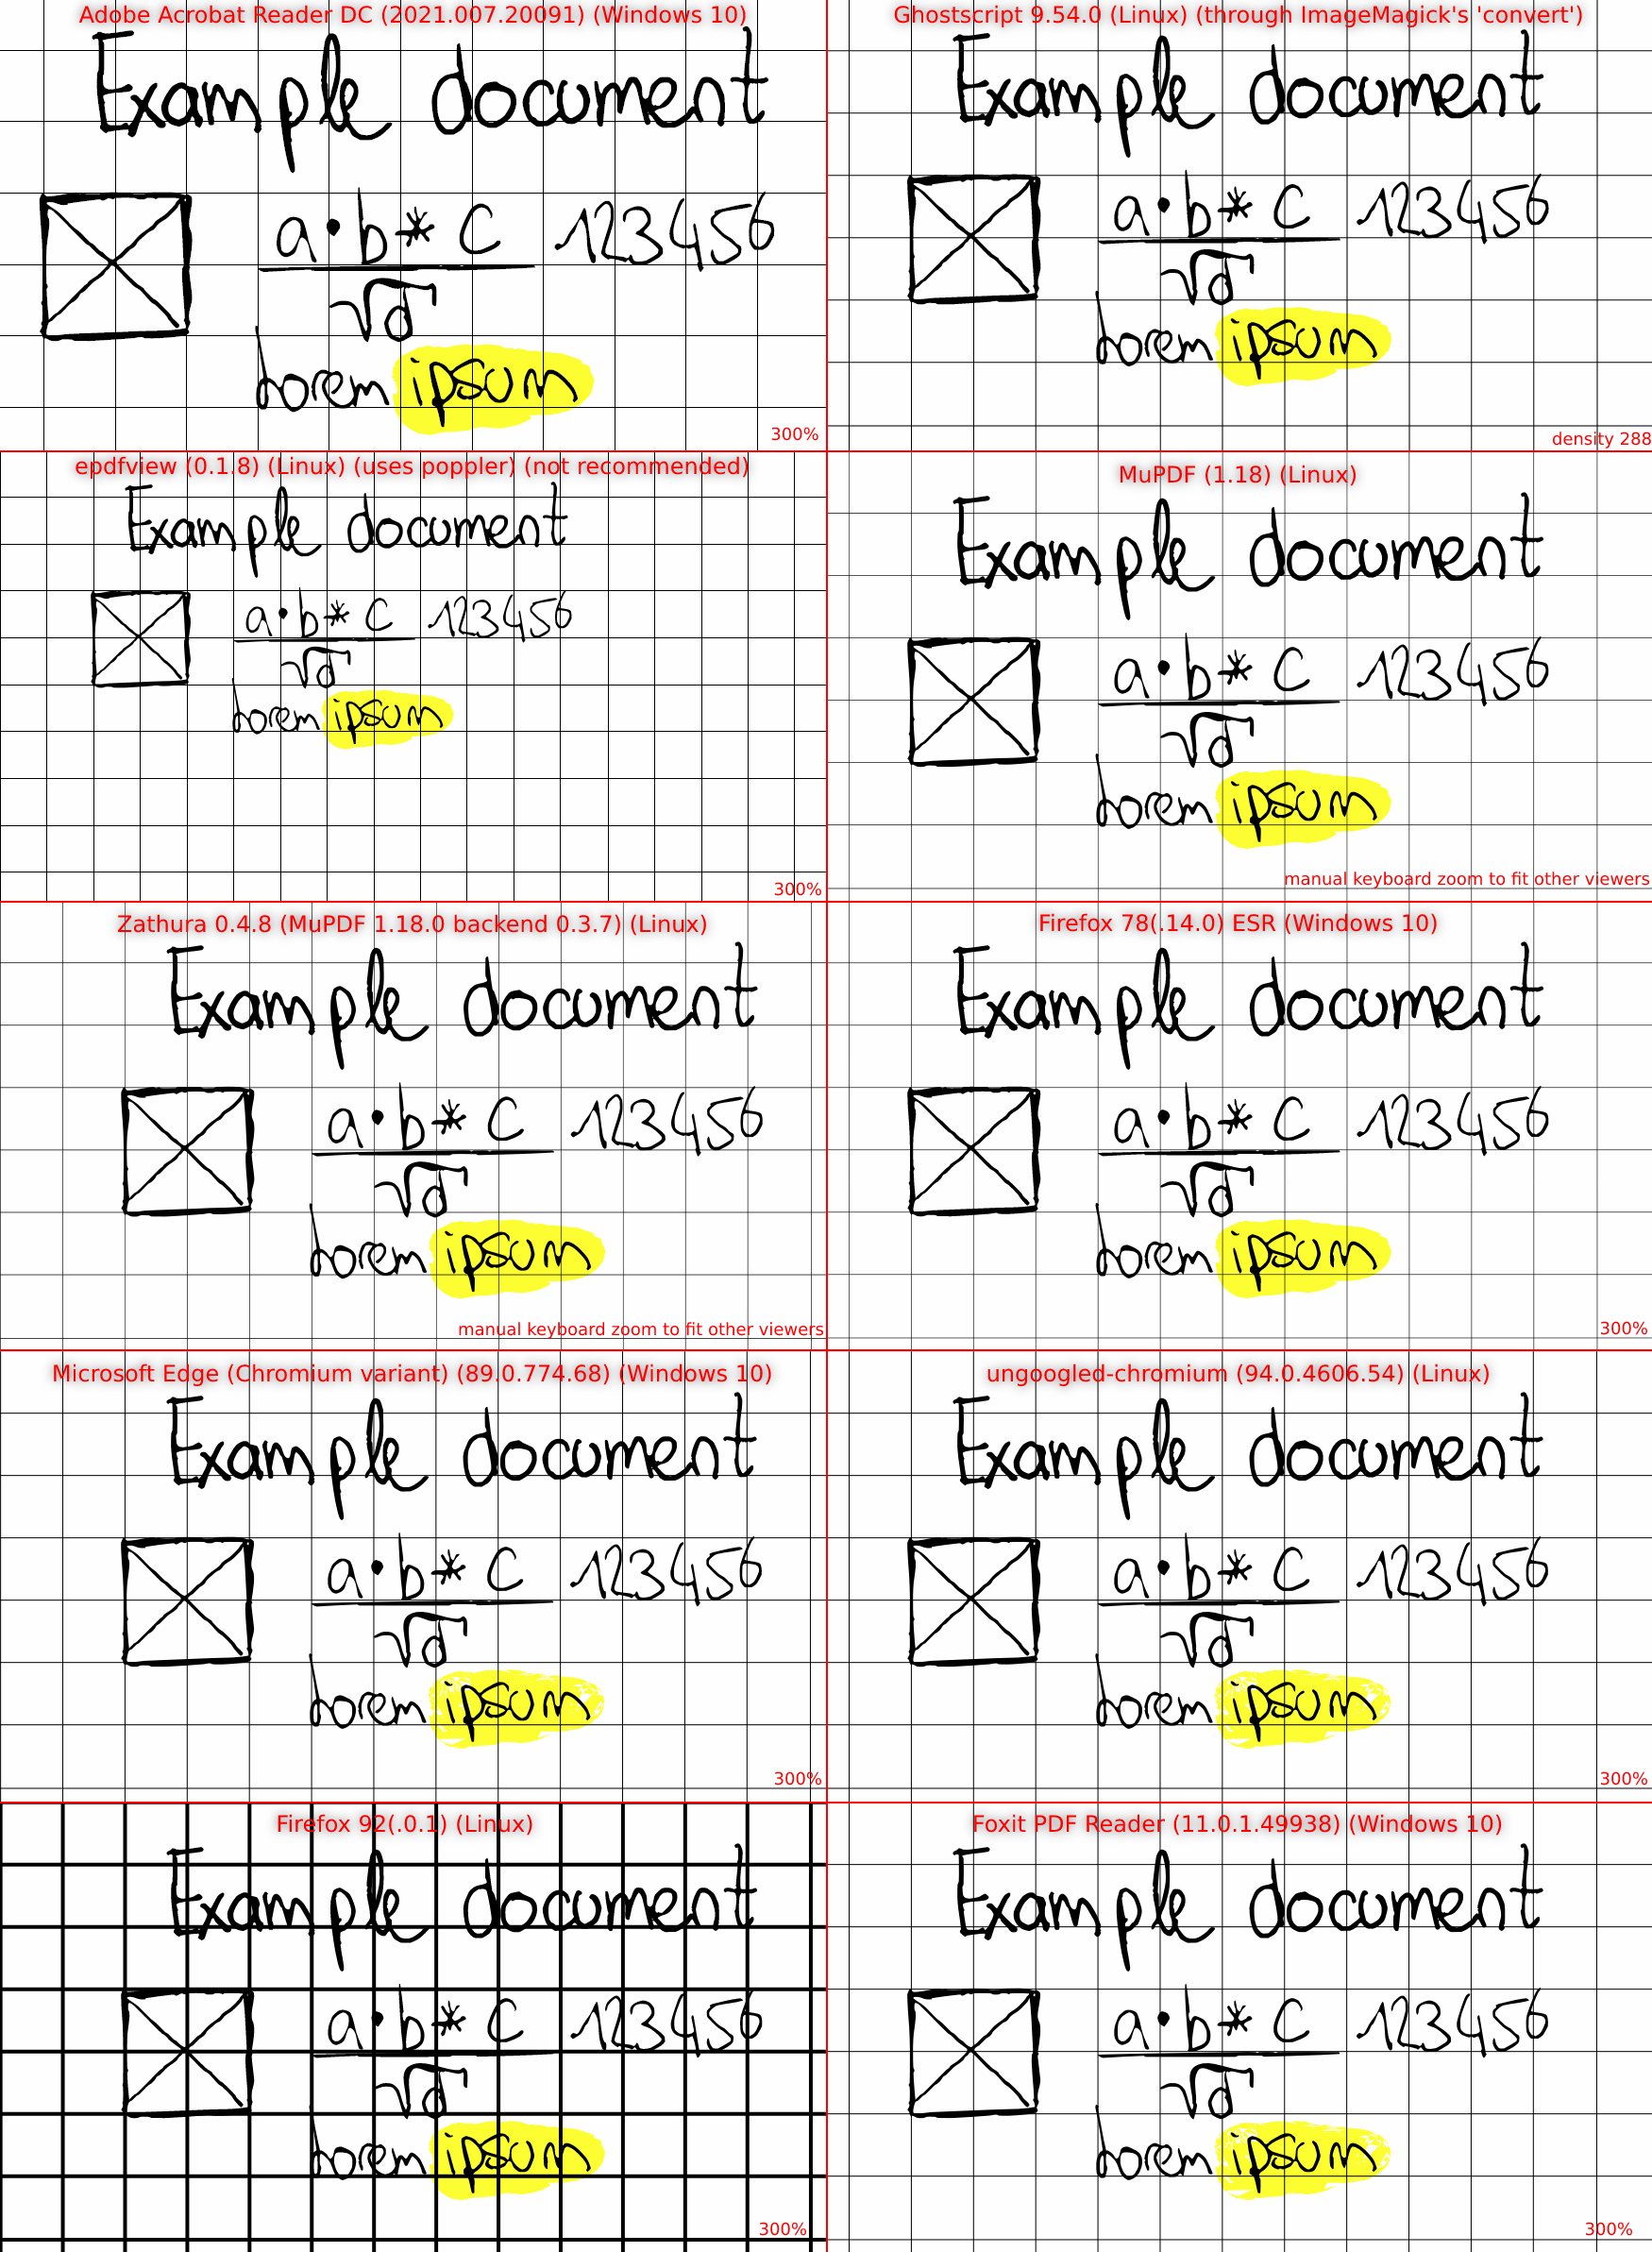 Adobe Acrobat Reader DC (2021.007.20091) (Windows 10)
Example document
a·b*c 123456
√d
Lorem ipsum
300%
Ghostscript 9.54.0 (Linux) (through ImageMagick's 'convert')
Example document
a·b*c 123456
√d
Lorem ipsum
density 288
epdfview (0.1.8) (Linux) (uses poppler) (not recommended)
Example document
a·b*c 123456
√d
Lorem ipsum
300%
MuPDF (1.18) (Linux)
Example document
a·b*c 123456
√d
Lorem ipsum
manual keyboard zoom to fit other viewers
Zathura 0.4.8 (MuPDF 1.18.0 backend 0.3.7) (Linux)
Example document
a·b*c 123456
√d
Lorem ipsum
manual keyboard zoom to fit other viewers
Firefox 78(.14.0) ESR (Windows 10)
Example document
a·b*c 123456
√d
Lorem ipsum
300%
Microsoft Edge (Chromium variant) (89.0.774.68) (Windows 10)
Example document
a·b*c 123456
√d
Lorem ipsum
300%
ungoogled-chromium (94.0.4606.54) (Linux)
Example document
a·b*c 123456
√d
Lorem ipsum
300%
Firefox 92(.0.1) (Linux)
Example document
a·b*c 123456
√d
Lorem ipsum
300%
Foxit PDF Reader (11.0.1.49938) (Windows 10)
Example document
a·b*c 123456
√d
Lorem ipsum
300%